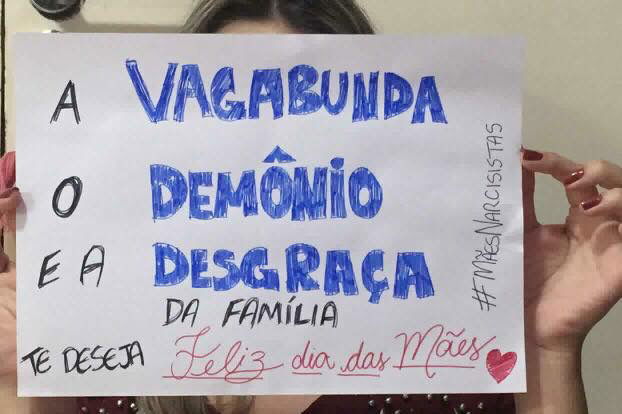 A VAGABUNDA
O DEMÔNIO
E A DESGRAÇA
DA FAMÍLIA
TE DESEJA Feliz dia das Mães
#MÃESNARCISISTAS